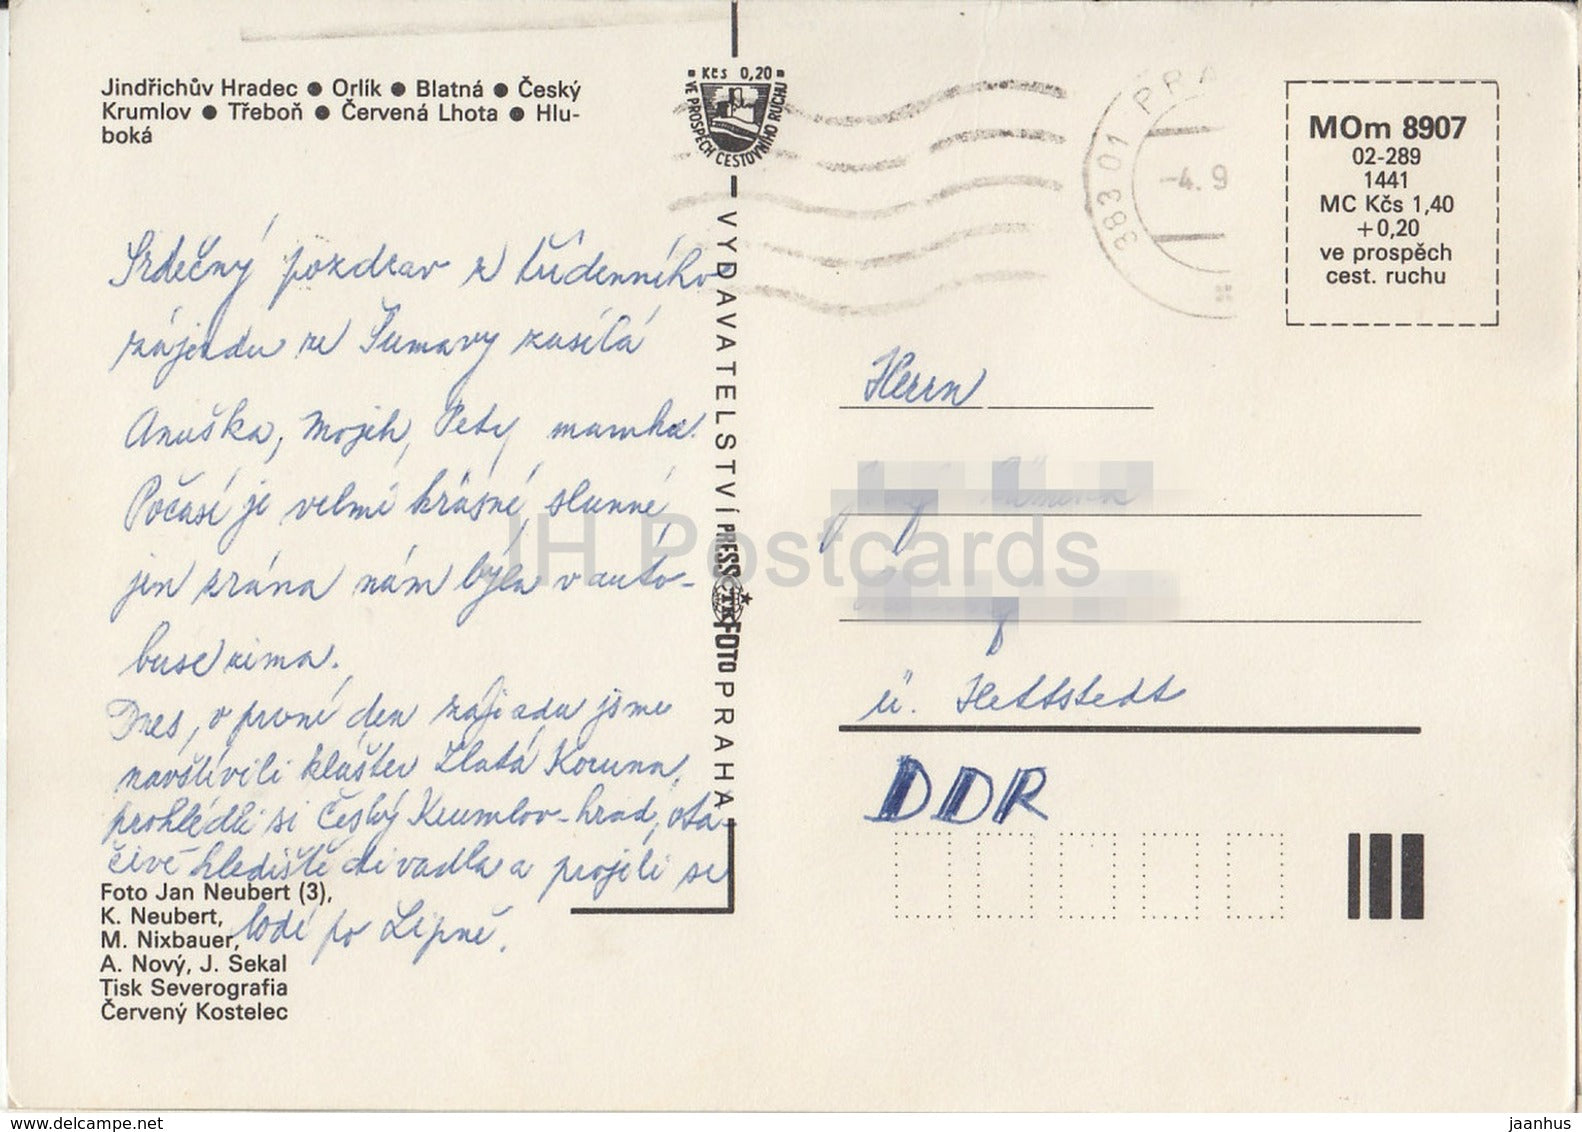 Jindřichův Hradec ● Orlík ● Blatná ● Český
Krumlov ● Třeboň ● Červená Lhota ● Hlu-
boká
Srdečný pozdrav z týdenního
zájezdu ze Šumavy zasílá
Anuška, Pety mamka.
Počasí je velmi krásné, slunné,
jen zrána nám byla v auto-
buse zima.
Dnes, v první den zájezdu jsme
navštívili klášter Zlatá Koruna,
prohlédli si Český Krumlov-hrad, otá-
čivé hlediště divadla a projeli se
lodí po Lipně.
Foto Jan Neubert (3),
K. Neubert,
M. Nixbauer,
A. Nový, J. Sekal
Tisk Severografia
Červený Kostelec
Kčs 0,20
VE PROSPĚCH CESTOVNÍHO RUCHU
VYDAVATELSTVÍ PRESSFOTO PRAHA
ČTK
383 01 PRA
-4. 9
MOm 8907
02-289
1441
MC Kčs 1,40
+0,20
ve prospěch
cest. ruchu
Herrn
ü. Hettstedt
DDR
JH Postcards
www.delcampe.net
jaanhus